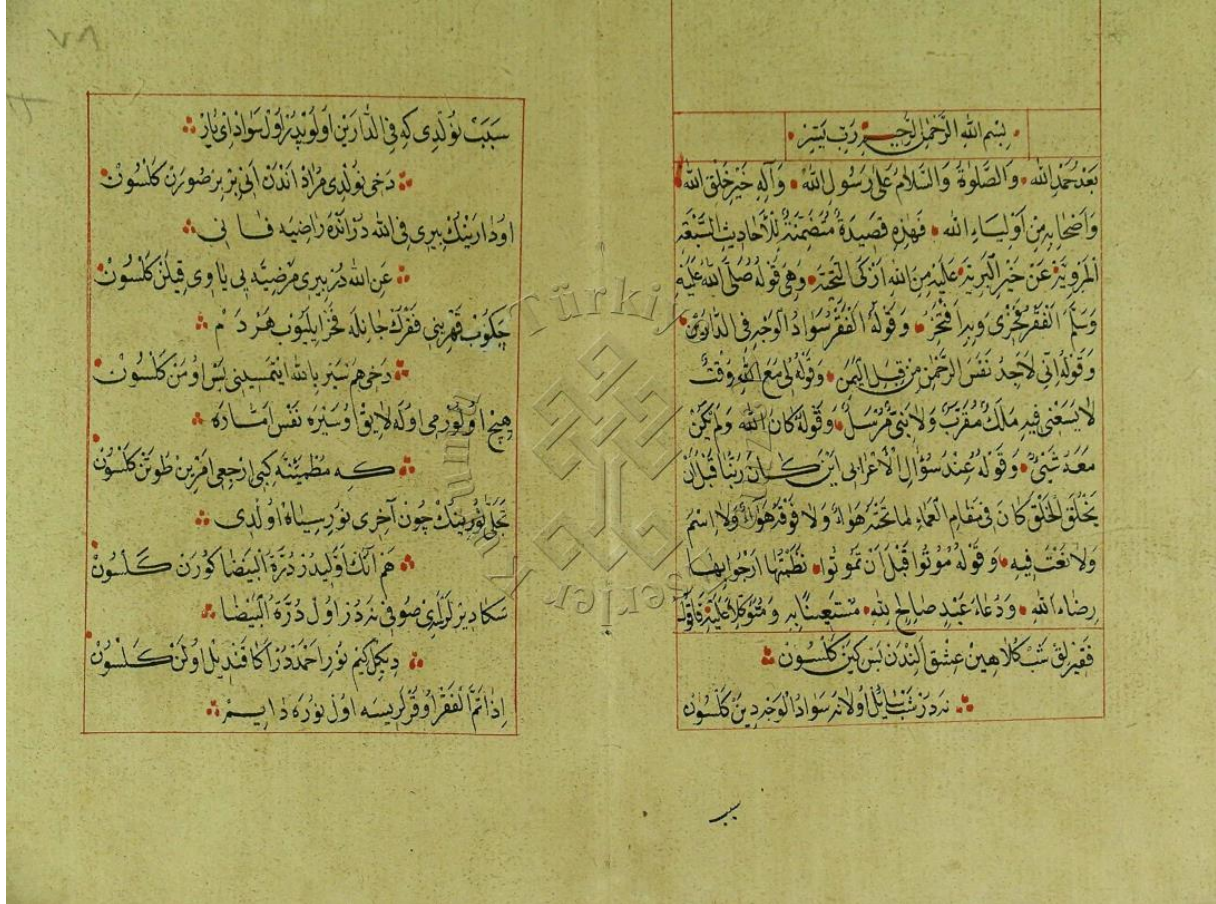 بسم الله الرحمن الرحيم رب يسر
بعد حمد الله والصلوة والسلام على رسول الله وآله خير خلق الله
واصحابه من اولياء الله فهذه قصيدة متضمنة للأحاديث السبعة
المروية عن خير البرية عليه من الله ازكى التحية وهى قوله صلى الله عليه
وسلم الفقر فخرى وبه افتخر وقوله الفقر سواد الوجه فى الدارين
وقوله انى لاجد نفس الرحمن من قبل اليمن وقوله لى مع الله وقت
لا يسعنى فيه ملك مقرب ولا نبى مرسل وقوله كان الله ولم يكن
معه شئ وقوله عند سؤال الأعرابى اين كان ربنا قبل أن
يخلق الخلق كان فى مقام العماء ما تحته هواء ولا فوقه هواء ولا اسم
ولا نعت فيه وقوله موتوا قبل أن تموتوا نظمتها ارجوا بها
رضاء الله ودعاء عبد صالح لله مستعينا به ومتوكلا عليه فاقول
فقيرلق شب كلاهين عشق الندن بس كين كلسون
نه در شب ايله اولا نه سواد الوجه دين كلسون
سبب
٧٨
سبب نولدى كه فى الدارين اولوبدر اول سواد اى يار
دخى نولدى مراد اندن انى بر بر صورن كلسون
اودارينك بيرى فى الله در آنده راضيه فانى
عن الله در بيرى مرضيه بى ياوى قيلن كلسون
چكوب قهرينى فقرك جانيله فخر ايليوب هر دم
دخى هم سير بالله ايتمسينى بس اومن كلسون
هيچ اولورمى اوله لايق اوسيره نفس اماره
كه مطمئنه كبى ارجعى امرين طوين كلسون
تجلى نورينك چون آخرى نور سياه اولدى
هم آنك اوليدر درة البيضا كورن كلسون
سكا دير لرايدى صوفى نه در اول درة البيضا
ديكل كيم نور احمددر اكا قنديل اولن كلسون
اذا تم الفقر اوقرلريسه اول نوره دايم
Türkiye Yazma Eserler Kurumu